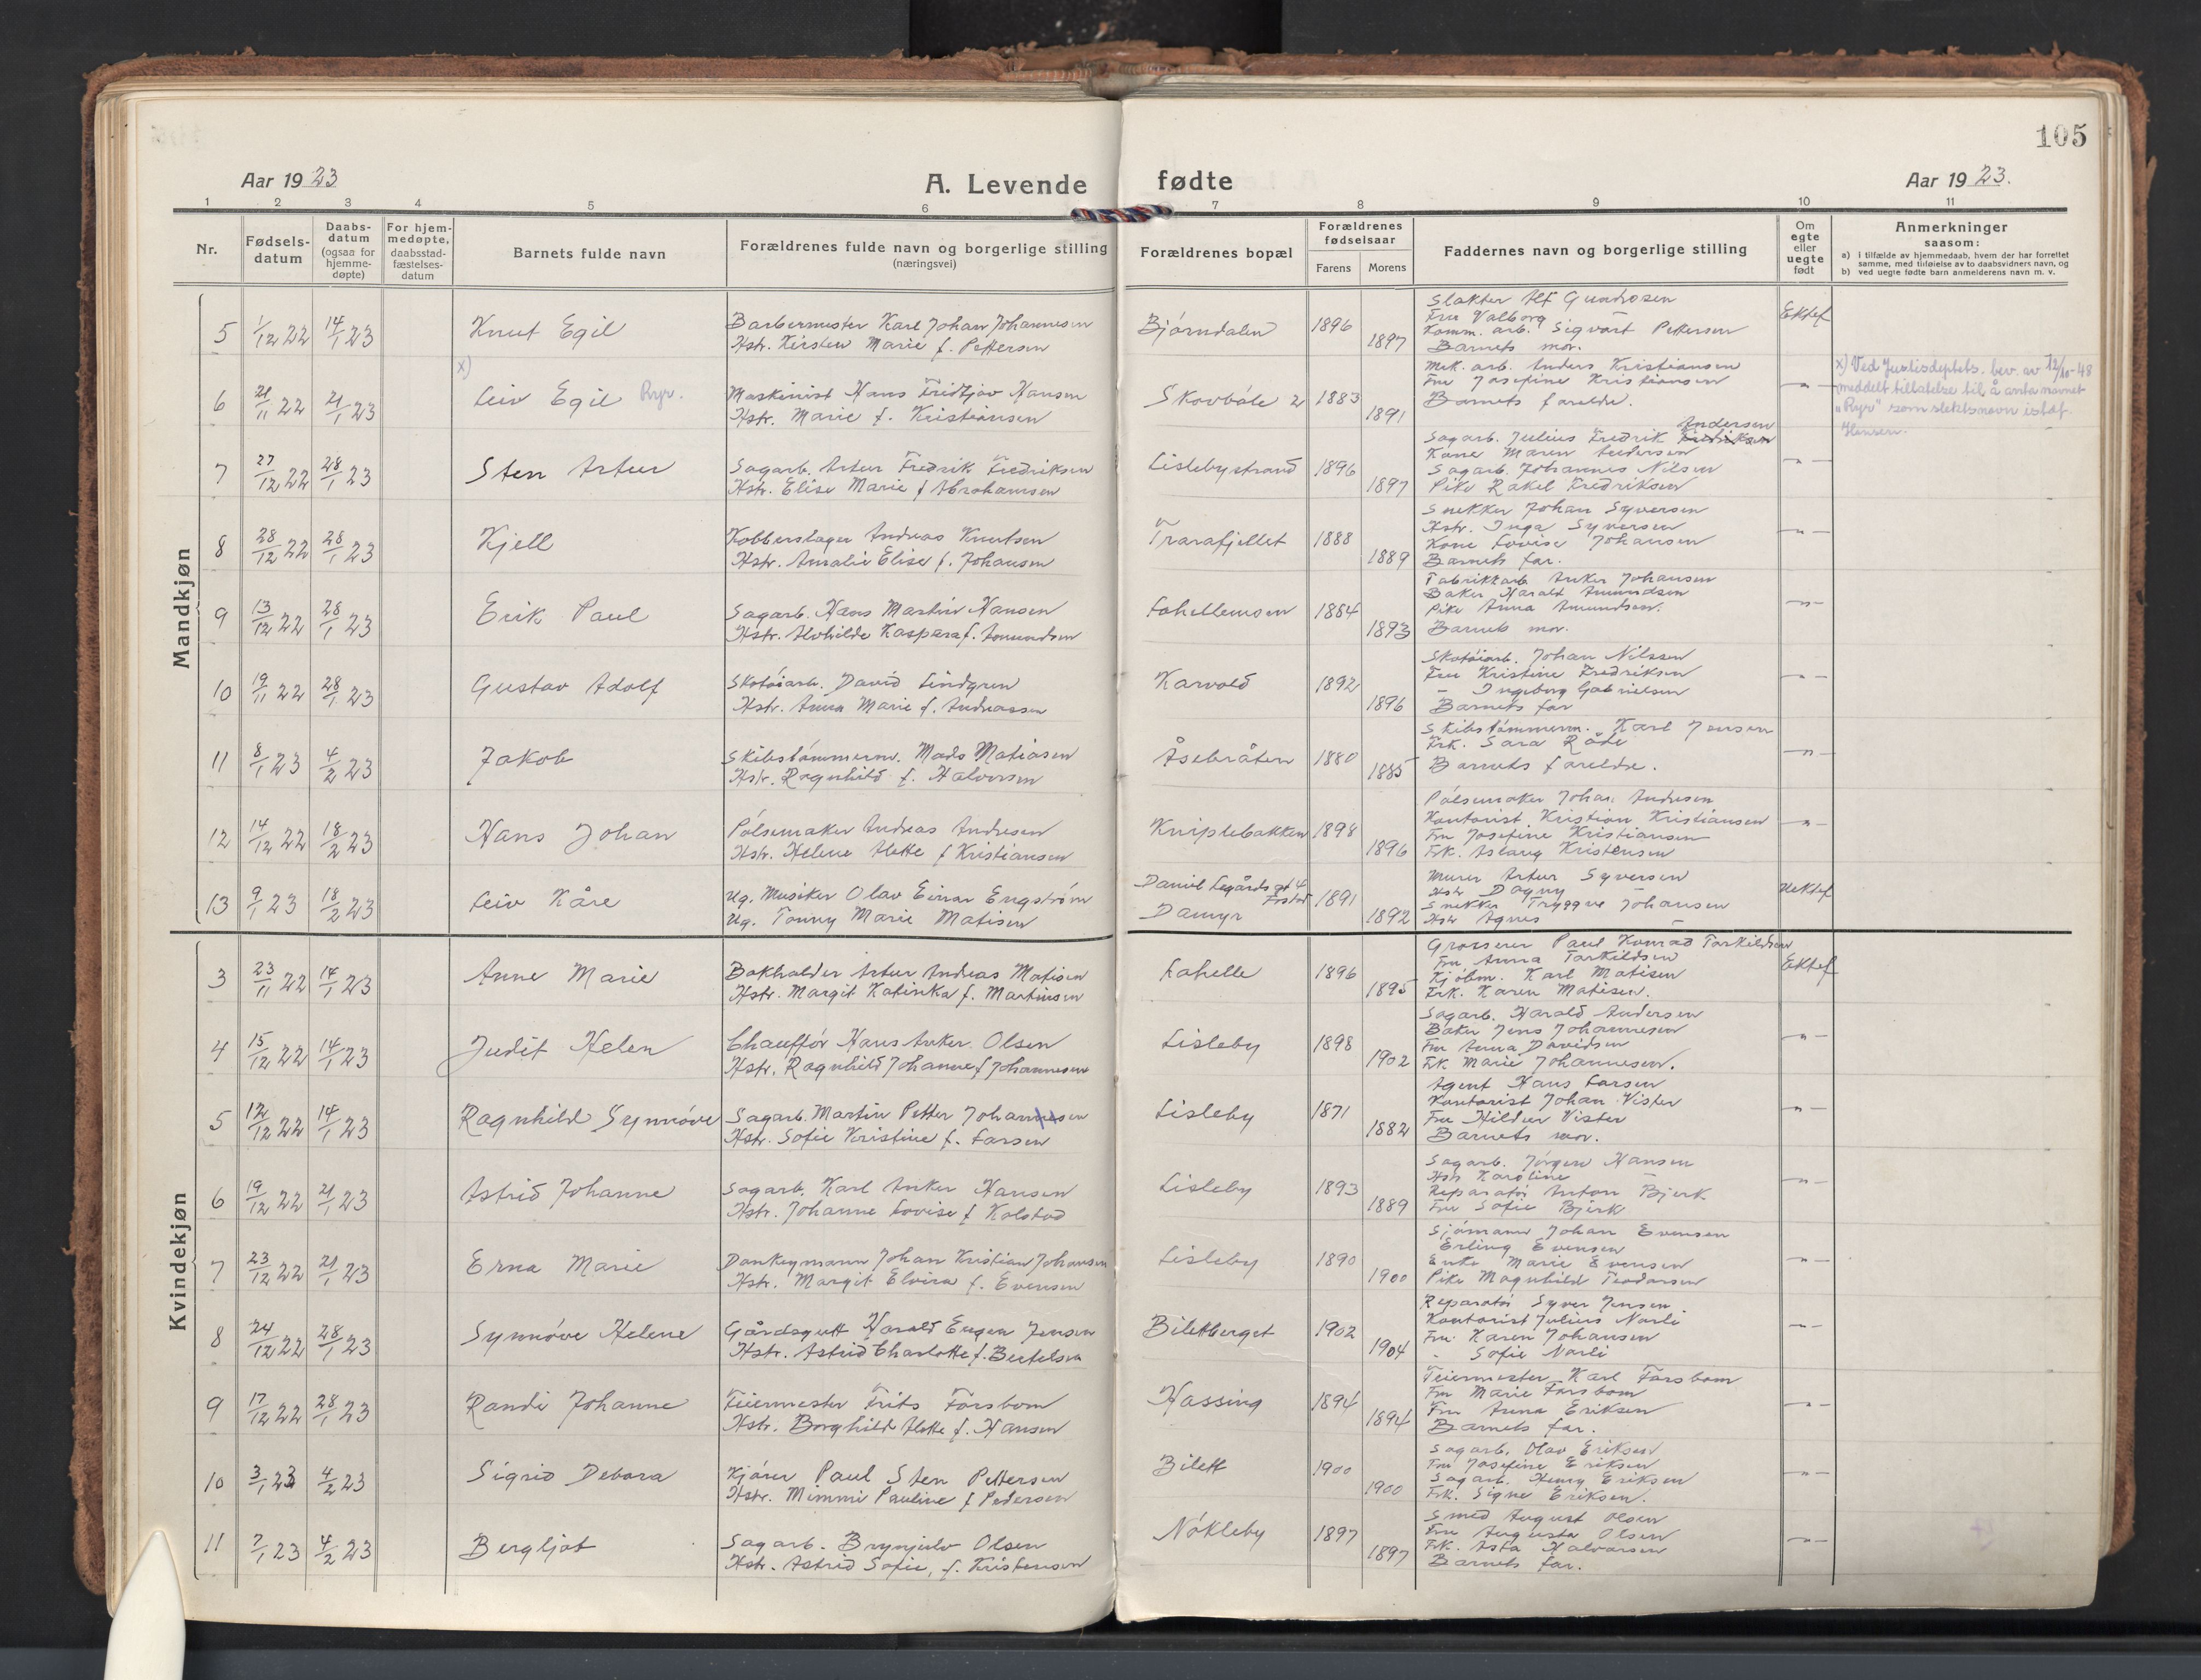 105
Aar 1923
A. Levende fødte
Aar 1923.
1 2 3 4 5 6 7 8 9 10 11
Nr.
Fødselsdatum
Daabsdatum (ogsaa for hjemmedøpte)
For hjemmedøpte, daabsstadfæstelsesdatum
Barnets fulde navn
Forældrenes fulde navn og borgerlige stilling (næringsvei)
Forældrenes bopæl
Forældrenes fødselsaar
Farens Morens
Faddernes navn og borgerlige stilling
Om egte eller uegte født
Anmerkninger saasom:
a) i tilfælde av hjemmedaab, hvem der har forrettet samme, med tilføielse av to daabsvidners navn, og
b) ved uegte fødte barn anmelderens navn m. v.
Mandkjøn
5 1/12 22 14/1 23 Knut Egil
Barbermester Karl Johan Johannesen
Hstr. Kirsten Marie f. Pettersen
Bjørndalen 1896 1897
Slakter Alf Gundrosen
Fru Valborg
Komm. arb. Sigvart Pettersen
Barnets mor.
Ektef
6 21/11 22 21/1 23 x) Leiv Egil Ryr.
Maskinist Hans Fridtjov Hansen
Hstr. Marie f. Kristiansen
Skovbøle 2 1883 1891
Mek. arb. Anders Kristiansen
Fru Josefine Kristiansen
Barnets foreldre.
-"-
x) Ved Justisdeptets. bev. av 12/10-48
meddelt tillatelse til å anta navnet
"Ryr" som slektsnavn istdf.
Hansen.
7 27/12 22 28/1 23 Sten Artur
Sagarb. Artur Fredrik Fredriksen
Hstr. Elise Marie f Abrahamsen
Lislebystrand 1896 1897
Andersen
Sagarb. Julius Fredrik Fredriksen
Kone Maren Andersen
Sagarb. Johannes Nilsen
Pike Rakel Fredriksen
-"-
8 28/12 22 28/1 23 Kjell
Kobberslager Andreas Knutsen
Hstr. Amalie Elise f. Johansen
Trarafjellet 1888 1889
Snekker Johan Syversen
Hstr. Inga Syversen
Kone Lovise Johansen
Barnets far.
-"-
9 13/12 22 28/1 23 Erik Paul
Sagarb. Hans Martin Hansen
Hstr. Alvhilde Kaspara f. Amundsen
Lahellemoen 1884 1893
Fabrikkarb. Anker Johansen
Baker Harald Amundsen
Pike Anna Amundsen.
Barnets mor.
-"-
10 19/11 22 28/1 23 Gustav Adolf
Skotøiarb. David Lindgren
Hstr. Anna Marie f. Andreassen
Karvold 1892 1896
Skotøiarb. Johan Nilssen
Fru Kristine Fredriksen
- Ingeborg Gabrielsen
Barnets far
-"-
11 8/1 23 4/2 23 Jakob
Skibstømmerm. Mads Matiasen
Hstr. Ragnhild f. Halvorsen
Åsebråten 1880 1885
Skibstømmerm. Karl Jensen
Frk. Sara Råde
Barnets foreldre.
-"-
12 14/12 22 18/2 23 Hans Johan
Pølsemaker Andreas Andresen
Hstr. Helene Alette f Kristiansen
Kniplebakken 1898 1896
Pølsemaker Johan Andresen
Kontorist Kristian Kristiansen
Fru Josefine Kristiansen
Frk. Aslaug Kristensen
-"-
13 9/1 23 18/2 23 Leiv Kåre
Ug. Musiker Olav Einar Engstrøm
Ug. Tonny Marie Matisen
Daniel Legårds gt 4
Damyr 1891 1892
Murer Artur Syversen
Hstr Dagny -
Snekker Tryggve Johansen
Hstr Agnes -
Uektef
Kvindekjøn
3 23/11 22 14/1 23 Anne Marie
Bokholder Artur Andreas Matisen
Hstr. Margit Katinka f. Martinsen
Lahelle 1896 1895
Grosserer Paul Konrad Torkildsen
Fru Anna Torkildsen
Kjøbm. Karl Matisen
Frk. Karen Matisen.
Ektef
4 15/12 22 14/1 23 Judit Helen
Chauffør Hans Anker Olsen
Hstr. Ragnhild Johanne f Johannesen
Lisleby 1898 1902
Sagarb. Harald Andersen
Baker Jens Johannesen
Fru Anna Davidsen
Frk Marie Johannesen.
-"-
5 12/12 22 14/1 23 Ragnhild Synnøve
Sagarb. Martin Petter Johannesen
Hstr. Sofie Kristine f. Larsen
Lisleby 1871 1882
Agent Hans Larsen
Kontorist Johan Vister
Fru Hildur Vister
Barnets mor.
-"-
6 19/12 22 21/1 23 Astrid Johanne
Sagarb. Karl Anker Hansen
Hstr. Johanne Lovise f Kolstad
Lisleby 1893 1889
Sagarb. Jørgen Hansen
Hstr Karoline -
Reparatør Anton Bjerk
Fru Sofie Bjerk
-"-
7 23/12 22 21/1 23 Erna Marie
Donkeymann Johan Kristian Johansen
Hstr. Margit Elvira f. Evensen
Lisleby 1890 1900
Sjømann Johan Evensen
Erling Evensen
Enke Marie Evensen
Pike Magnhild Teodorsen
-"-
8 24/12 22 28/1 23 Synnøve Helene
Gårdsgutt Harald Eugen Jensen
Hstr. Astrid Charlotte f. Bertelsen
Biletberget 1902 1904
Reparatør Syver Jensen.
Kontorist Julius Narli
Fru. Karen Johansen
- Sofie Narli
-"-
9 17/12 22 28/1 23 Randi Johanne
Feiermester Frits Forsbom
Hstr. Borghild Alette f. Hansen
Hassing 1894 1894
Feiermester Karl Forsbom
Fru Marie Forsbom
Fru Anna Eriksen
Barnets far.
-"-
10 3/1 23 4/2 23 Sigrid Debora
Kjører Paul Sten Pettersen
Hstr. Mimmi Pauline f Pedersen
Bilett 1900 1900
Sagarb. Olav Eriksen
Fru Josefine Eriksen
Sagarb. Henry Eriksen
Frk. Signe Eriksen.
-"-
11 7/1 23 4/2 23 Bergljot
Sagarb. Brynjulv Olsen
Hstr. Astrid Sofie, f. Kristensen
Nøkleby 1897 1897
Smed August Olsen
Fru Augusta Olsen
Frk. Asta Halvorsen
Barnets far.
-"-